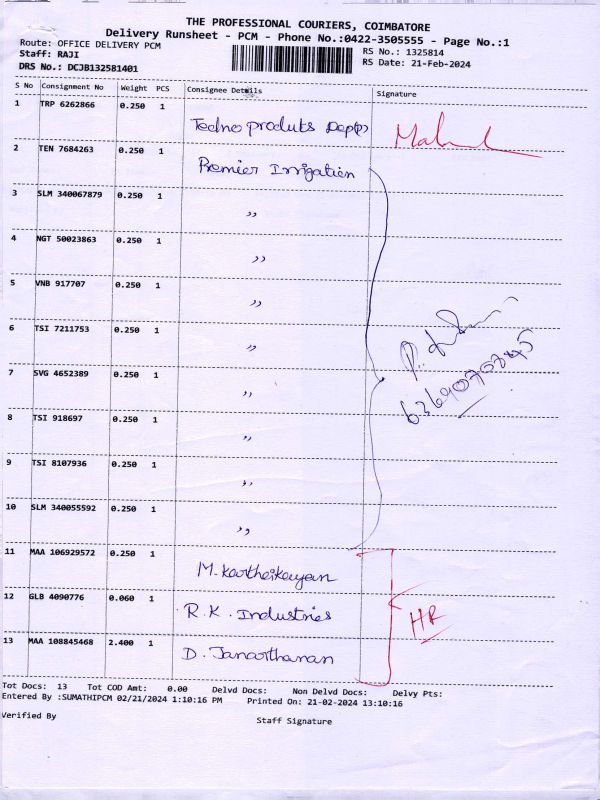 THE PROFESSIONAL COURIERS, COIMBATORE
Delivery Runsheet - PCM - Phone No.:0422-3505555 - Page No.:1
Route: OFFICE DELIVERY PCM RS No.: 1325814
Staff: RAJI RS Date: 21-Feb-2024
DRS No.: DCJB132581401
S No Consignment No Weight PCS Consignee Details Signature
1 TRP 6262866 0.250 1
Techno produts
2 TEN 7684263 0.250 1
Premier Irrigation
3 SLM 340067879 0.250 1
,,
4 NGT 50023863 0.250 1
,,
5 VNB 917707 0.250 1
,,
6 TSI 7211753 0.250 1
,,
7 SVG 4652389 0.250 1
,,
8 TSI 918697 0.250 1
,,
9 TSI 8107936 0.250 1
,,
10 SLM 340055592 0.250 1
,,
11 MAA 106929572 0.250 1
M. Kartheikeyan
12 GLB 4090776 0.060 1
R.K. Industries HR
13 MAA 108845468 2.400 1
D. Janarthanan
Tot Docs: 13 Tot COD Amt: 0.00 Delvd Docs: Non Delvd Docs: Delvy Pts:
Entered By :SUMATHIPCM 02/21/2024 1:10:16 PM Printed On: 21-02-2024 13:10:16
Verified By Staff Signature